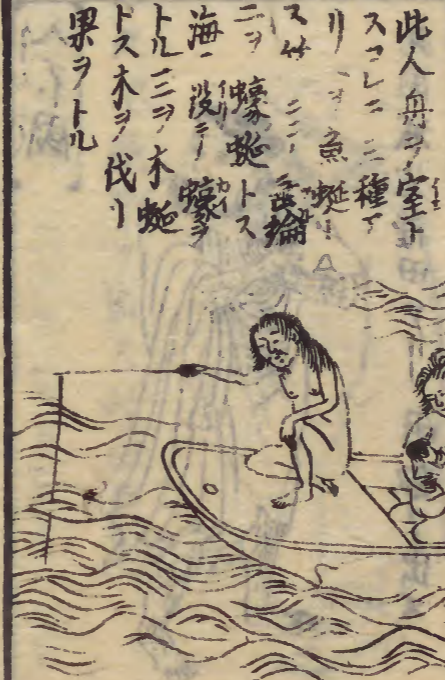 此人舟ヲ室ト
スコレニ三種ア
リ魚蜒
ス垂綸
二ヲ蠔蜒トス
海ニ没シ蠔ヲ
トル三ヲ木蜒
トス木ヲ伐リ
果ヲトル